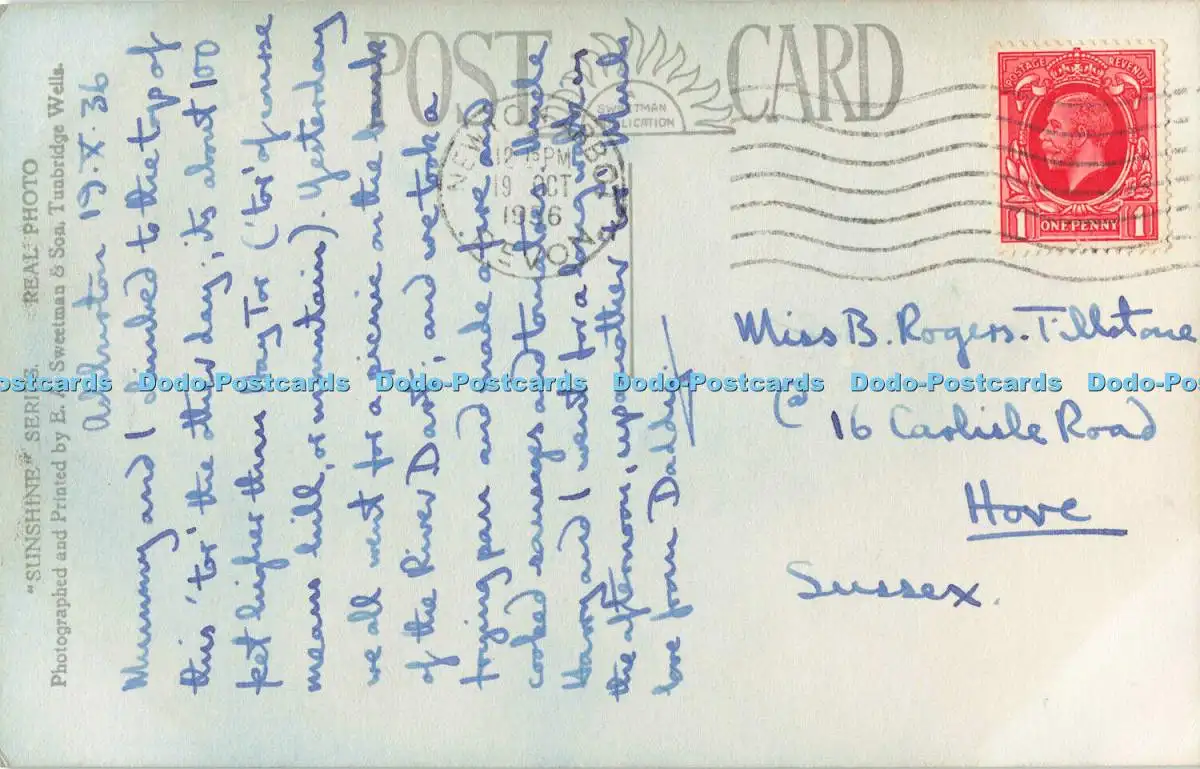 POST CARD
A SWEETMAN PUBLICATION
"SUNSHINE" SERIES. REAL PHOTO
Photographed and Printed by E. A. Sweetman & Son, Tunbridge Wells.
Ashburton 19.X.36
Mummy and I climbed to the top of
this 'tor' the other day; its about 100
feet higher than Hay Tor ('tor' of course
means hill, or mountain). Yesterday
we all went for a picnic on the bank
of the River Dart; and we took a
frying pan and made a fire and
cooked sausages and tomatoes. Uncle
Harry and I went for a long walk in
the afternoon, up another tor. Much
love from Daddy
NEWTON ABBOT
12 PM
19 OCT
1936
DEVON
POSTAGE REVENUE
1 ONE PENNY 1
Miss B. Rogers-Tillstone
16 Carlisle Road
Hove
Sussex.
Dodo-Postcards Dodo-Postcards Dodo-Postcards Dodo-Postcards Dodo-Postcards